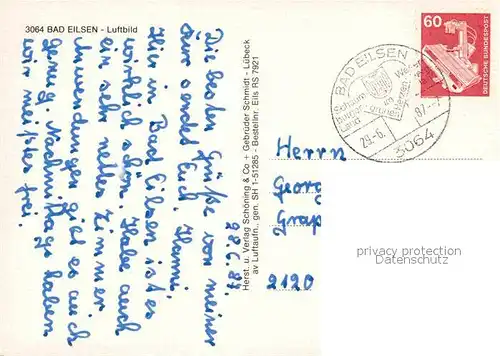 3064 BAD EILSEN - Luftbild
28.6.87.
Die besten Grüße von meiner
Kur sendet Euch Hanni.
Hier in Bad Eilsen ist es
wirklich schön. Habe auch
ein sehr nettes Zimmer.
Anwendungen gibt es auch
genug. Nachmittags haben
wir meistens frei.
Herst. u. Verlag Schöning & Co + Gebrüder Schmidt - Lübeck
av Luftaufn., gen. SH 1-51285 - Bestellnr. Eils RS 7921
60
DEUTSCHE BUNDESPOST
BAD EILSEN
im
29.-6.
87.-7
3064
Herrn
Georg
Grap
2120
privacy protection
Datenschutz